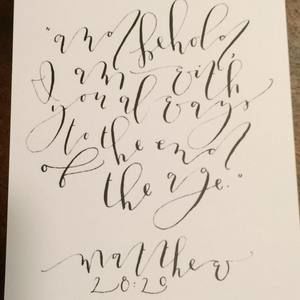 "and behold,
I am with
you always
to the end
of the age."
Matthew
28:20